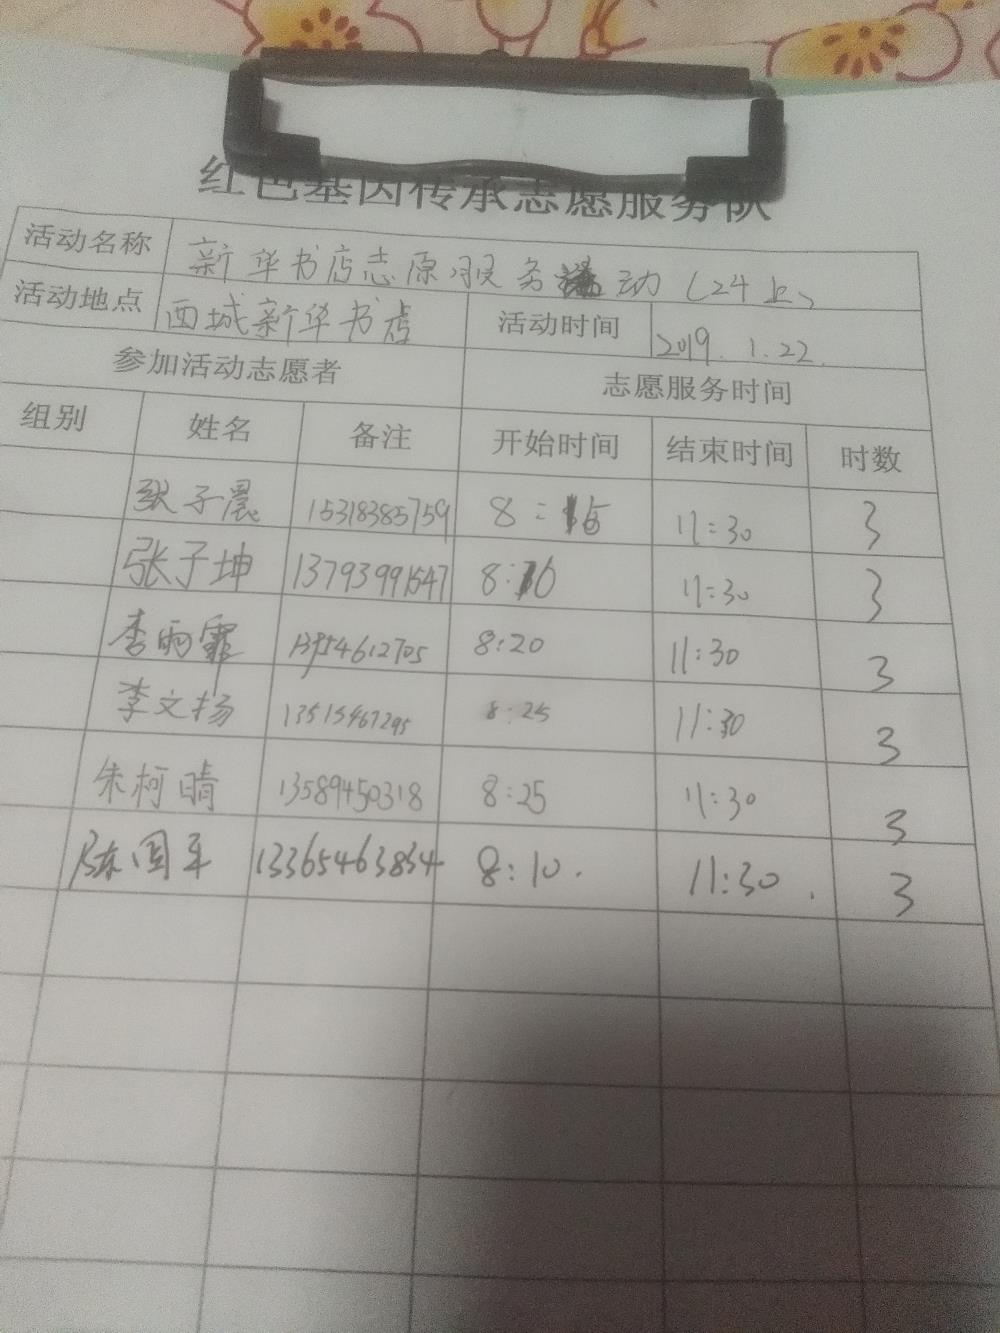 红色基因传承志愿服务队
活动名称 新华书店志原服务 动（24上）
活动地点 西城新华书店 活动时间 2019.1.22.
参加活动志愿者 志愿服务时间
组别 姓名 备注 开始时间 结束时间 时数
张子晨 15318385759 8:15 11:30 3
张子坤 13793991547 8:16 11:30 3
李雨霏 13954612705 8:20 11:30 3
李文扬 13515467295 8:25 11:30 3
朱柯晴 13589450318 8:25 11:30 3
陈国平 13365463834 8:10. 11:30. 3